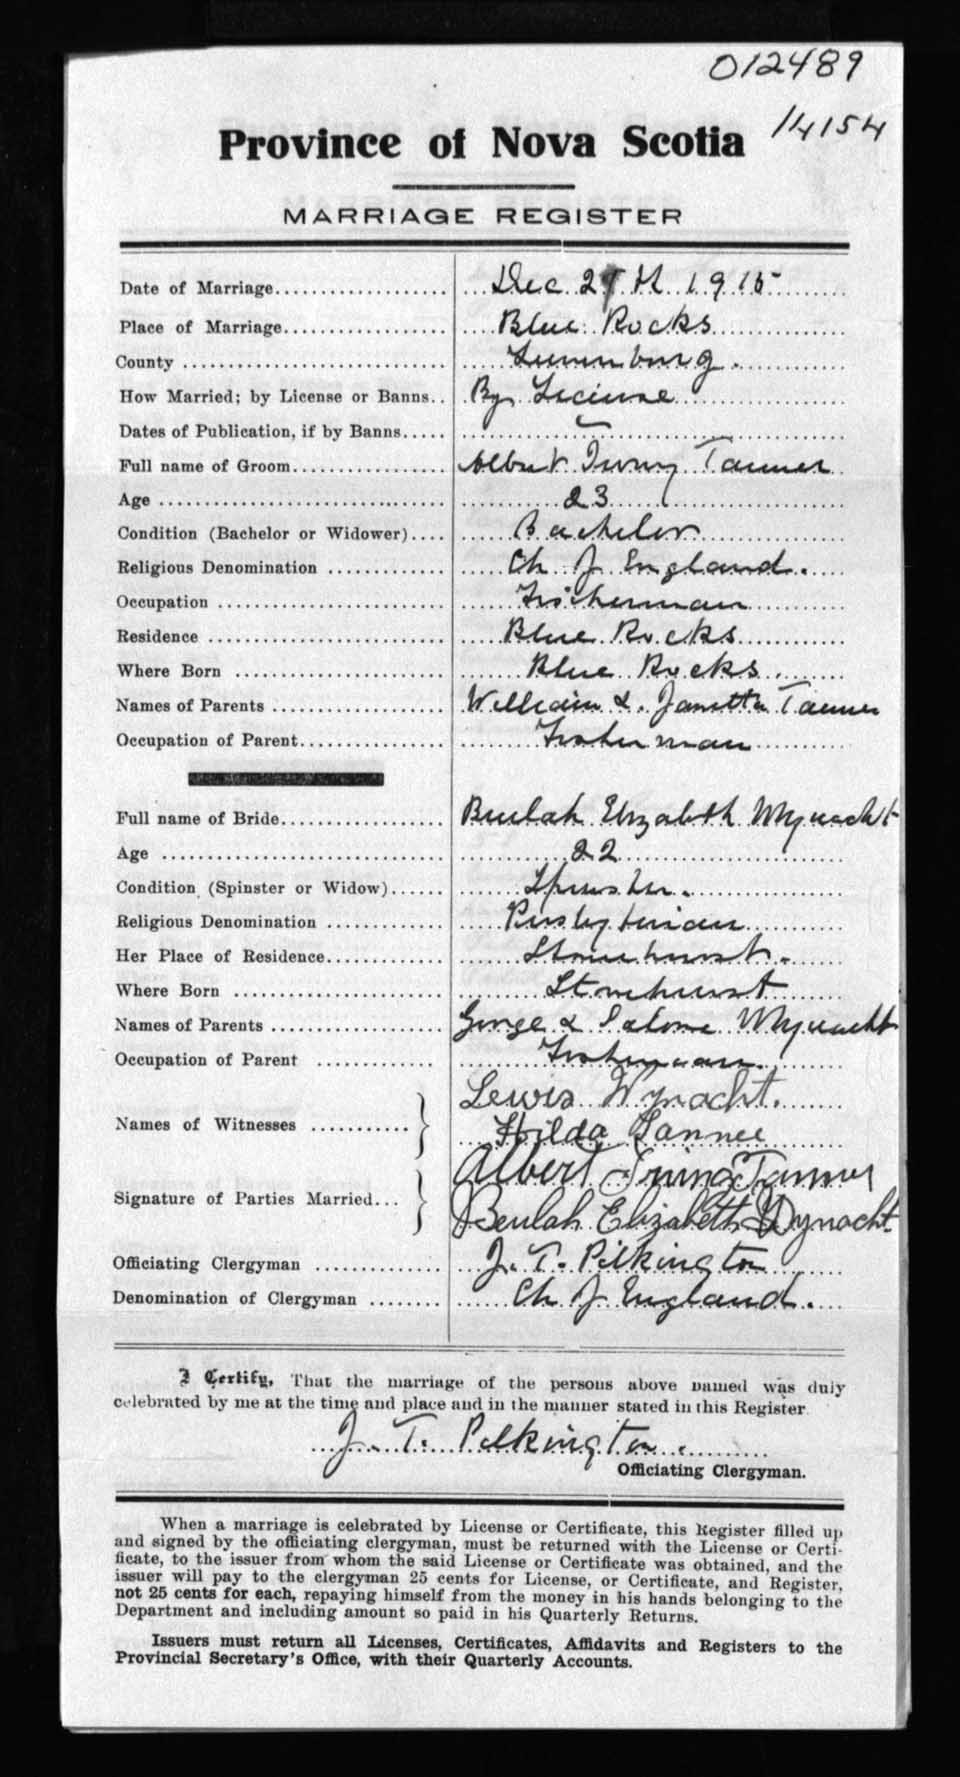 012489
14154
Province of Nova Scotia
MARRIAGE REGISTER
Date of Marriage Dec 2 th 1915
Place of Marriage Blue Rocks
County Lunenburg.
How Married; by License or Banns By Licinse
Dates of Publication, if by Banns
Full name of Groom Albert Irving Tanner
Age 23
Condition (Bachelor or Widower) Bachelor
Religious Denomination Ch of England.
Occupation Fisherman
Residence Blue Rocks
Where Born Blue Rocks.
Names of Parents William & Janetta Tanner
Occupation of Parent Fisherman
Full name of Bride Beulah Elizabeth Wynacht
Age 22
Condition (Spinster or Widow) Spinster.
Religious Denomination Presbyterian
Her Place of Residence Stonehurst.
Where Born Stonehurst
Names of Parents George & Salome Wynacht
Occupation of Parent Fisherman.
Lewis Wynacht.
Names of Witnesses
Hilda Tanner
Albert Irving Tanner
Signature of Parties Married
Beulah Elizabeth Wynacht.
Officiating Clergyman J. T. Pilkington
Denomination of Clergyman Ch of England.
I Certify, That the marriage of the persons above named was duly
celebrated by me at the time and place and in the manner stated in this Register.
J. T. Pilkington.
Officiating Clergyman.
When a marriage is celebrated by License or Certificate, this Register filled up
and signed by the officiating clergyman, must be returned with the License or Certi-
ficate, to the issuer from whom the said License or Certificate was obtained, and the
issuer will pay to the clergyman 25 cents for License, or Certificate, and Register,
not 25 cents for each, repaying himself from the money in his hands belonging to the
Department and including amount so paid in his Quarterly Returns.
Issuers must return all Licenses, Certificates, Affidavits and Registers to the
Provincial Secretary's Office, with their Quarterly Accounts.